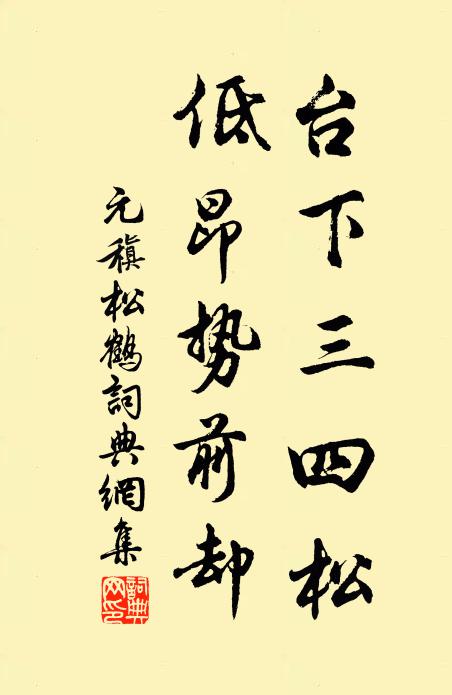 台下三四松
低昂势前却
元稹松鹤詞典網集
詞典网印